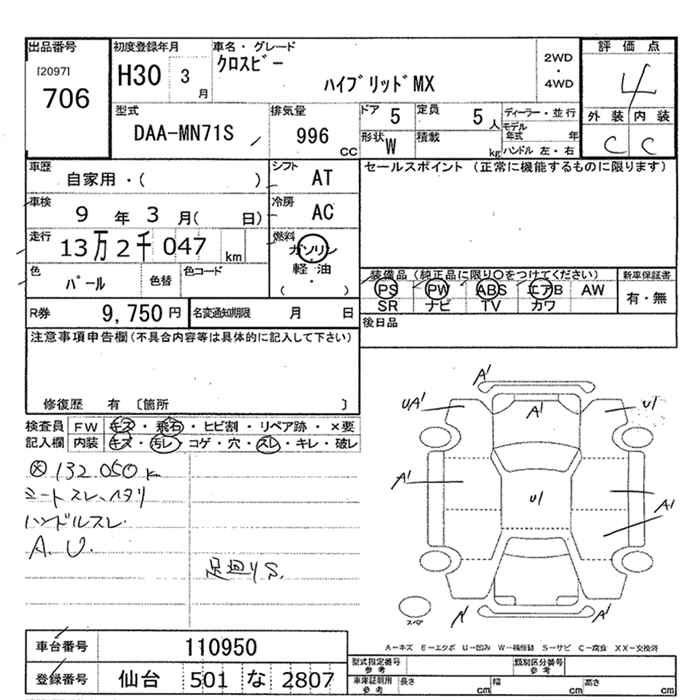 出品番号
[2097]
706
初度登録年月
H30 3 月
車名・グレード
クロスビー
ハイブリッドMX
2WD
・
4WD
評価点
4
外装 内装
C C
型式
DAA-MN71S
排気量
996 CC
ドア 5
定員 5 人
形状 W
積載 kg
ディーラー・並行
モデル年式 年
ハンドル 左・右
車歴
自家用・( )
シフト AT
セールスポイント (正常に機能するものに限ります)
車検 9 年 3 月( 日)
冷房 AC
走行 13万2千047 km
燃料
ガソリン
・
軽油
・
( )
色 パール
色替
色コード
装備品 (純正品に限り○をつけてください)
PS PW ABS エアB AW
SR ナビ TV カワ
新車保証書
有・無
R券 9,750円
名変通知期限 月 日
後日品
注意事項申告欄(不具合内容等は具体的に記入して下さい)
修復歴 有 [箇所 ]
検査員記入欄
FW キズ・飛石・ヒビ割・リペア跡・×要
内装 キズ・汚レ・コゲ・穴・スレ・キレ・破レ
132.050k
シートスレ、ヘタリ
ハンドルスレ
A.U.
足廻りS.
A1
UA1
A1
U1
A1
U1
A1
A1
スペア
A-キズ E-エクボ U-凹み W-補修跡 S-サビ C-腐食 XX-交換済
車台番号 110950
登録番号 仙台 501 な 2807
型式指定番号 参考
類別区分番号 参考
車庫証明用 参考
長さ cm
幅 cm
高さ cm